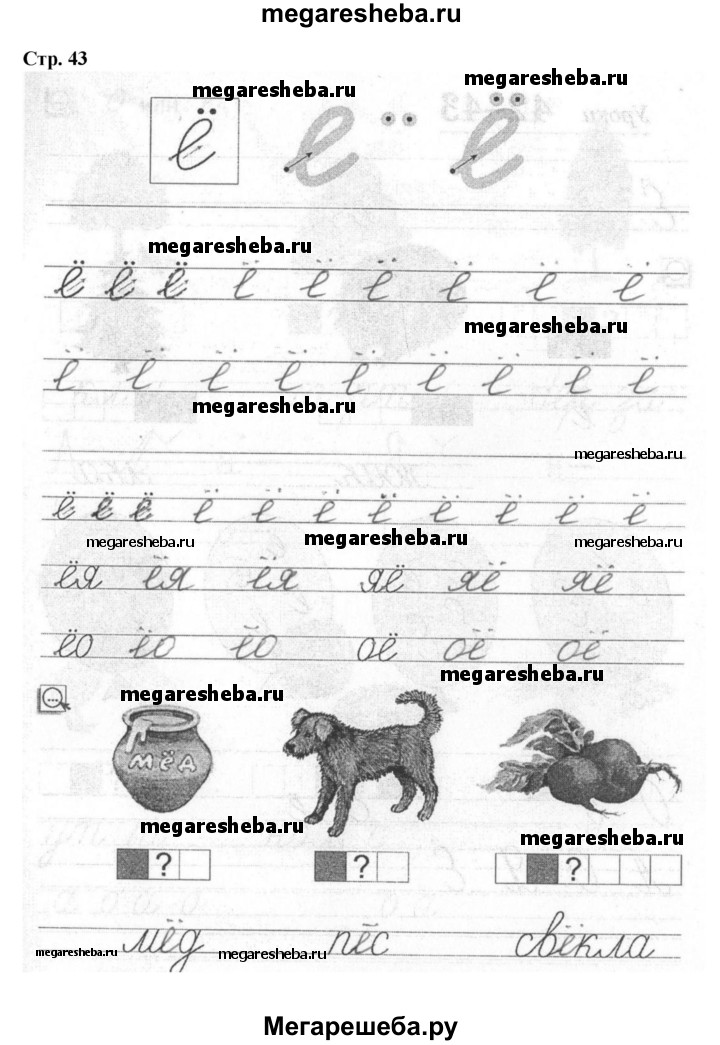 megaresheba.ru
Стр. 43
megaresheba.ru megaresheba.ru
Уроки 42-43
ё е ё
megaresheba.ru
ё ё ё ё ё ё ё ё ё
megaresheba.ru
ё ё ё ё ё ё ё ё ё
megaresheba.ru
megaresheba.ru
ё ё ё ё ё ё ё ё ё ё ё
megaresheba.ru megaresheba.ru megaresheba.ru
ёя ёя ёя яё яё яё
ёо ёо ёо оё оё оё
megaresheba.ru
megaresheba.ru
МЁД
megaresheba.ru
megaresheba.ru
? ? ?
мёд пёс свёкла
megaresheba.ru megaresheba.ru
Мегарешеба.ру